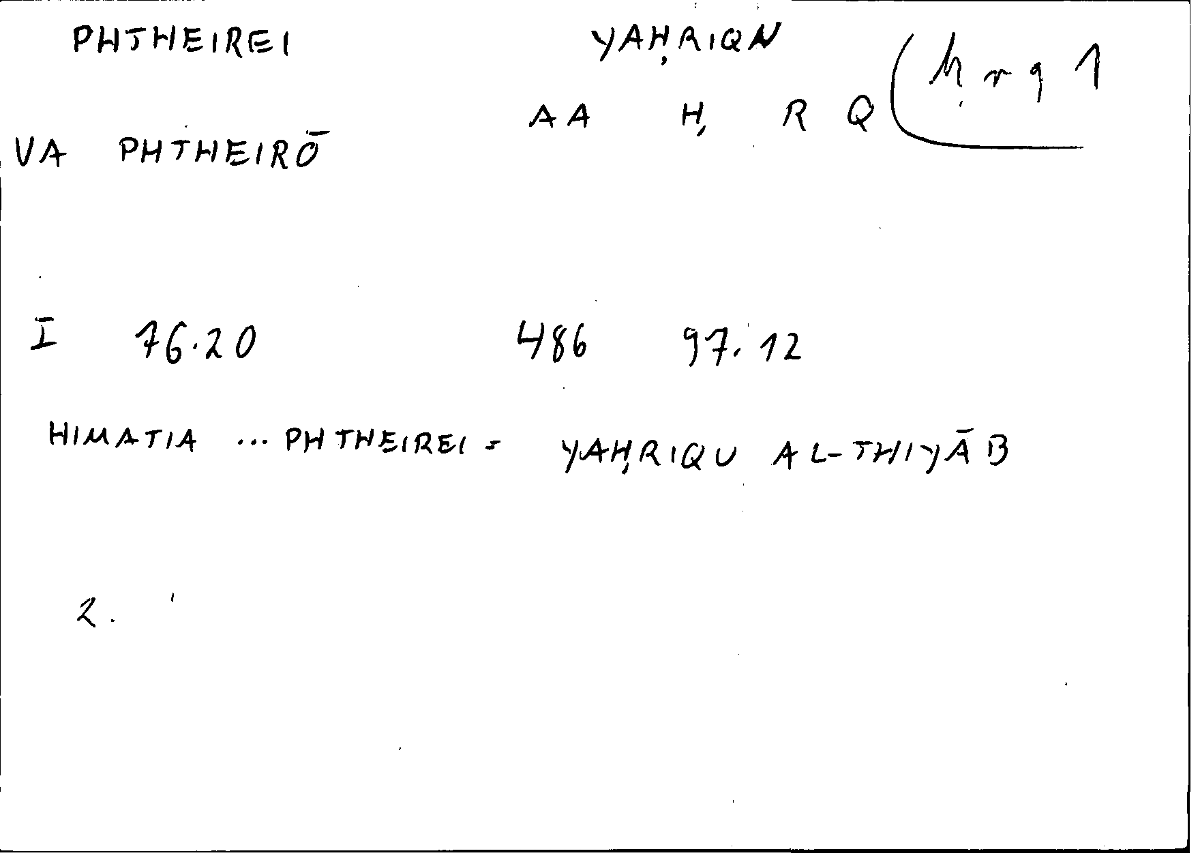 PHTHEIREI YAḤRIQN
ḥrq 1
AA Ḥ R Q
VA PHTHEIRŌ
I 76.20 486 97.12
HIMATIA ... PHTHEIREI = YAḤRIQU AL-THIYĀB
2.